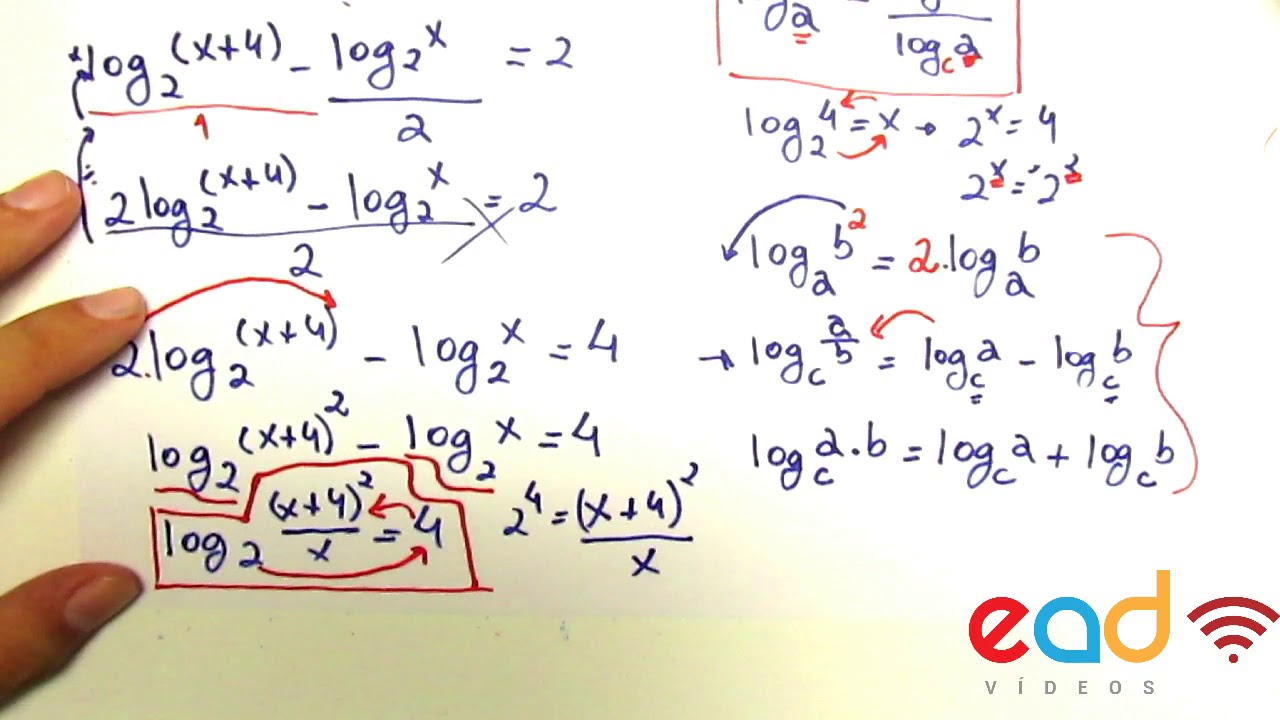 log₂(x+4) - log₂x = 2
1 2
2log₂(x+4) - log₂x = 2
2
2.log₂(x+4) - log₂x = 4
log₂(x+4)² - log₂x = 4
log₂ (x+4)²/x = 4 2⁴ = (x+4)²/x
log a
log_c a
log₂4 = x → 2ˣ = 4
2ˣ = 2²
log_a b² = 2.log_a b
→ log_c a/b = log_c a - log_c b
log_c a.b = log_c a + log_c b
ead
VÍDEOS